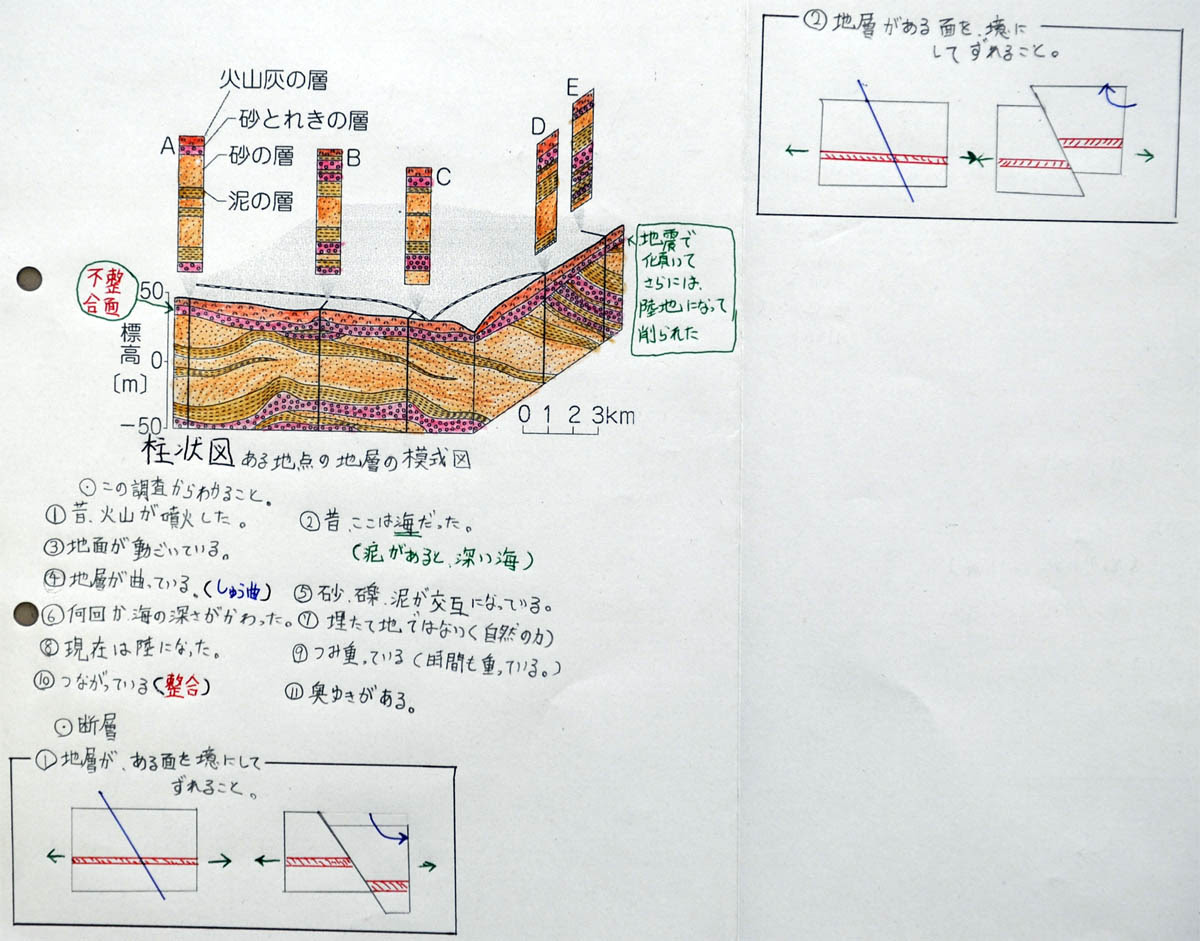 火山灰の層
砂とれきの層
砂の層
泥の層
A
B
C
D
E
不整
合面
50
標高
0
〔m〕
−50
0 1 2 3km
地震で
傾いて
さらには、
陸地になって
削られた
柱状図 ある地点の地層の模式図
⊙この調査からわかること。
①昔、火山が噴火した。
②昔、ここは海だった。
(泥があると、深い海)
③地面が動ごいている。
④地層が曲っている。(しゅう曲)
⑤砂、礫、泥が交互になっている。
⑥何回か、海の深さがかわった。
⑦埋たて地ではない(自然の力)
⑧現在は陸になった。
⑨つみ重っている(時間も重っている。)
⑩つながっている(整合)
⑪奥ゆきがある。
⊙断層
①地層が、ある面を境にして
ずれること。
②地層がある面を、境に
してずれること。